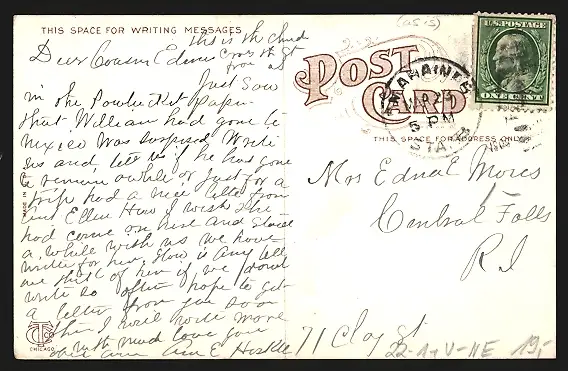 THIS SPACE FOR WRITING MESSAGES
This is the church
Dear Cousin Edna across the St
from us
Just Saw
in the Pawtucket Paper
that William had gone to
Mexico was surprised Write
us and tell us if he has gone
to remain awhile or just for a
trip had a nice letter from
Aunt Ellen How I wish she
had come on here and staid
a while with us we have
written for her. How is Amy tell
me think of her if we dont
write so often hope to get
a letter from you soon
then I will write more
with much love your
Ann E
POST CARD
5 PM
STA.
U.S. POSTAGE
ONE CENT
THIS SPACE FOR ADDRESS ONLY
Mrs Edna E
Central Falls
R I
71 Clay St
22-1-V-NE 19,-
MADE IN
CTC CO
CHICAGO